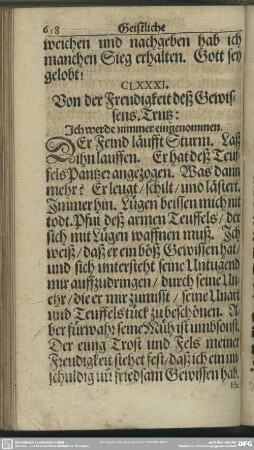 658 Geistliche
weichen und nachgeben hab ich
manchen Sieg erhalten. Gott sey
gelobt!
CLXXXI.
Von der Freudigkeit deß Gewis-
sens. Trutz:
Ich werde nimmer eingenommen.
DEr Feind läufft Sturm. Laß
ihn lauffen. Er hat deß Teuf-
fels Pantzer angezogen. Was dann
mehr? Er leugt/ schilt/ und lästert.
Immer hin. Lügen beissen mich nit
todt. Pfui deß armen Teuffels/ der
sich mit Lügen waffnen muß. Ich
weiß/ daß er ein böß Gewissen hat/
und sich untersteht seine Untugend
mir auffzudringen/ durch seine Un-
ehr/ die er mir zumist/ seine Unart
und Teuffelstück zu beschönen. A-
ber fürwahr seine Müh ist umbsonst.
Der einig Trost und Fels meiner
Freudigkeit stehet fest/ daß ich ein un-
schuldig uñ friedsam Gewissen hab.